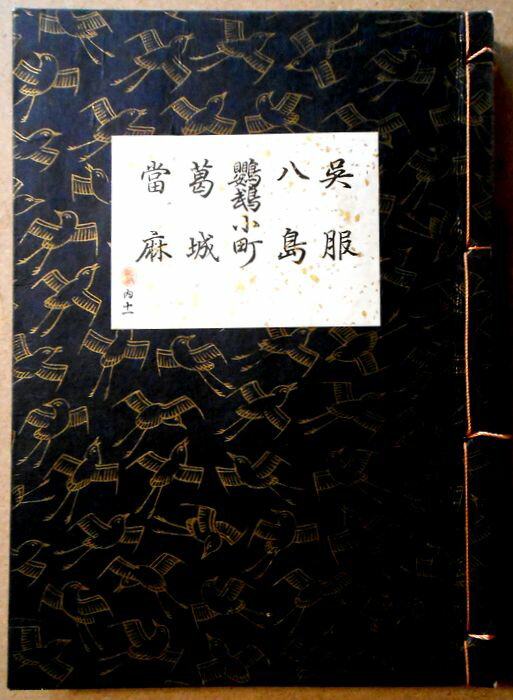 呉服
八島
鸚鵡小町
葛城
當麻
内十一